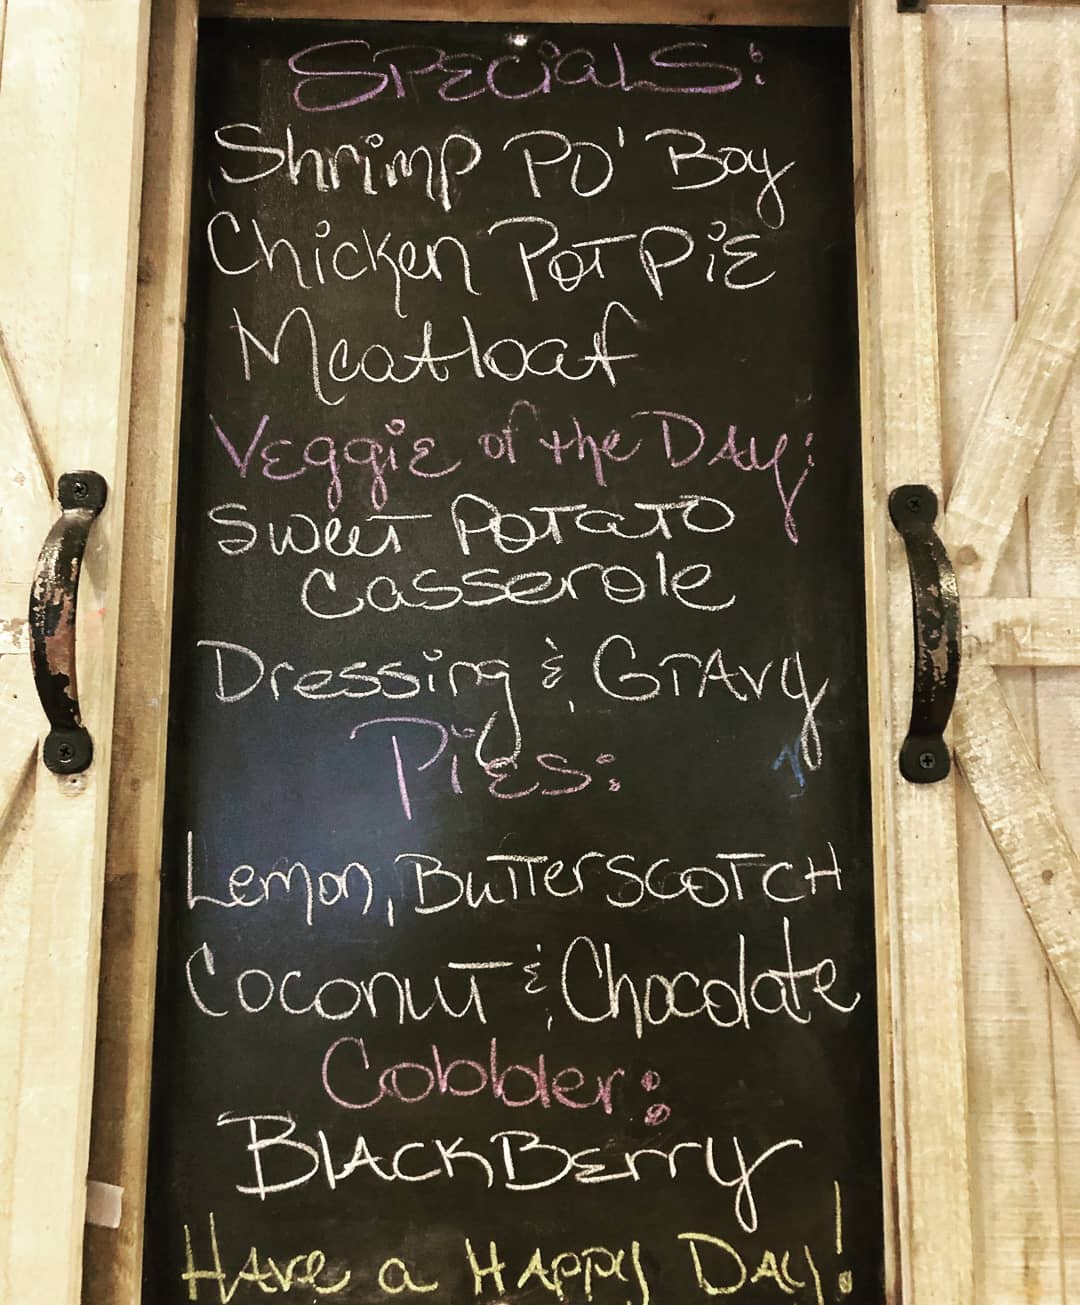 Specials:
Shrimp Po' Boy
Chicken Pot Pie
Meatloaf
Veggie of the Day:
Sweet Potato
Casserole
Dressing & Gravy
Pies:
Lemon, Butterscotch
Coconut & Chocolate
Cobbler:
BlackBerry
Have a Happy Day!